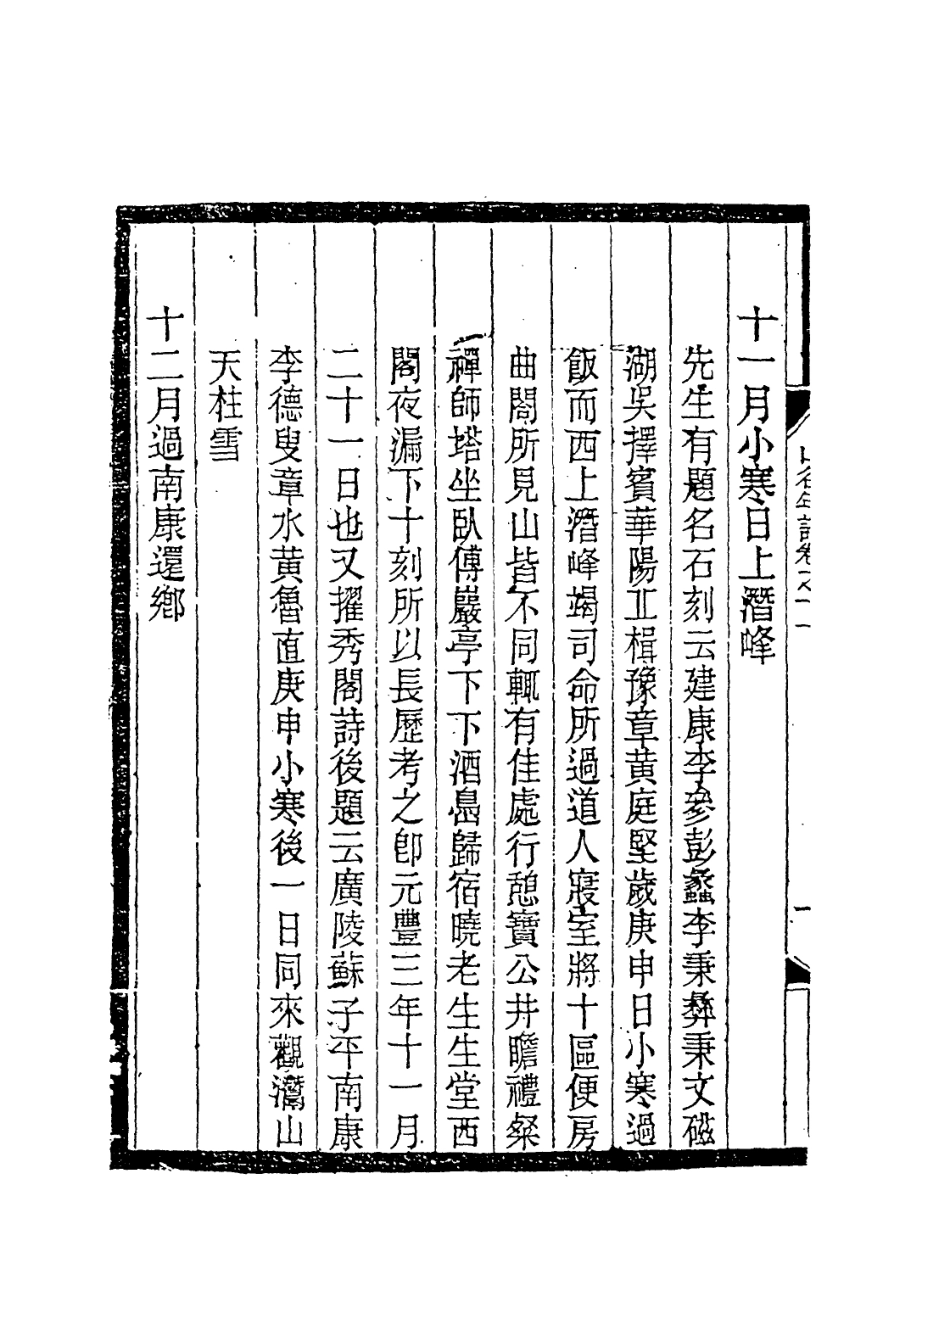 十一月小寒日上潛峰
先生有題名石刻云建康李參彭蠡李秉彝秉文磁
湖吳擇賓華陽㐀楫豫章黃庭堅歲庚申日小寒過
飯而西上潛峰竭司命所過道人寢室將十區便房
曲閣所見山皆不同輒有佳處行憩寶公井瞻禮粲
禪師塔坐臥傅巖亭下下酒島歸宿曉老生生堂西
閣夜漏下十刻所以長歷考之卽元豐三年十一月
二十一日也又擢秀閣詩後題云廣陵蘇子平南康
李德叟章水黃魯直庚申小寒後一日同來觀灊山
天柱雪
十二月過南康還鄉